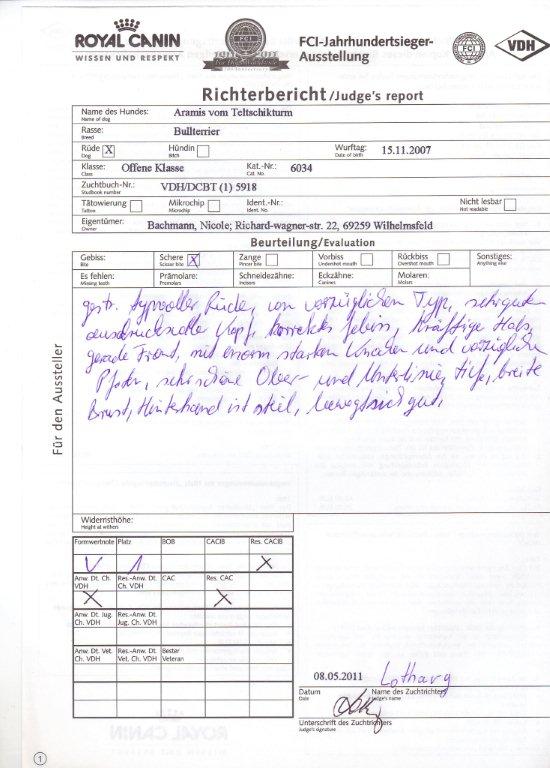 ROYAL CANIN
WISSEN UND RESPEKT
FCI
FCI-Jahrhundertsieger-
Ausstellung
FCI
VDH
Richterbericht/Judge's report
Name des Hundes: Aramis vom Teltschikturm
Name of dog
Rasse: Bullterrier
Breed
Rüde X Hündin Wurftag: 15.11.2007
Dog Bitch Date of birth
Klasse: Offene Klasse Kat.-Nr.: 6034
Class Cat. No.
Zuchtbuch-Nr.: VDH/DCBT (1) 5918
Studbook number
Tätowierung Mikrochip Ident.-Nr.: Nicht lesbar
Tattoo Microchip Ident. No. Not readable
Eigentümer: Bachmann, Nicole; Richard-wagner-str. 22, 69259 Wilhelmsfeld
Owner
Beurteilung/Evaluation
Gebiss: Schere X Zange Vorbiss Rückbiss Sonstiges:
Bite Scissor bite Pincer bite Undershot mouth Overshot mouth Anything else
Es fehlen: Prämolare: Schneidezähne: Eckzähne: Molaren:
Missing teeth Premolars Incisors Canines Molars
gestr. typvoller Rüde, von vorzüglichen Typ, sehr guten
ausdrucksvolle Kopf, korrektes Gebiss, kräftige Hals,
gerade Front, mit enorm starken Knochen und vorzügliche
Pfoten, sehr schöne Ober- und Unterlinie, tiefe, breite
Brust, Hinterhand ist steil, bewegt sich gut.
Für den Aussteller
Widerristhöhe:
Height at withers
Formwertnote Platz BOB CACIB Res. CACIB
V 1 X
Anw. Dt. Ch. VDH Res.-Anw. Dt. Ch. VDH CAC Res. CAC
X X
Anw. Dt. Jug. Ch. VDH Res.-Anw. Dt. Jug. Ch. VDH
Anw. Dt. Vet. Ch. VDH Res.-Anw. Dt. Vet. Ch. VDH Bester Veteran
08.05.2011
Datum Name des Zuchtrichters
Date Judge's name
Unterschrift des Zuchtrichters
Judge's signature
1